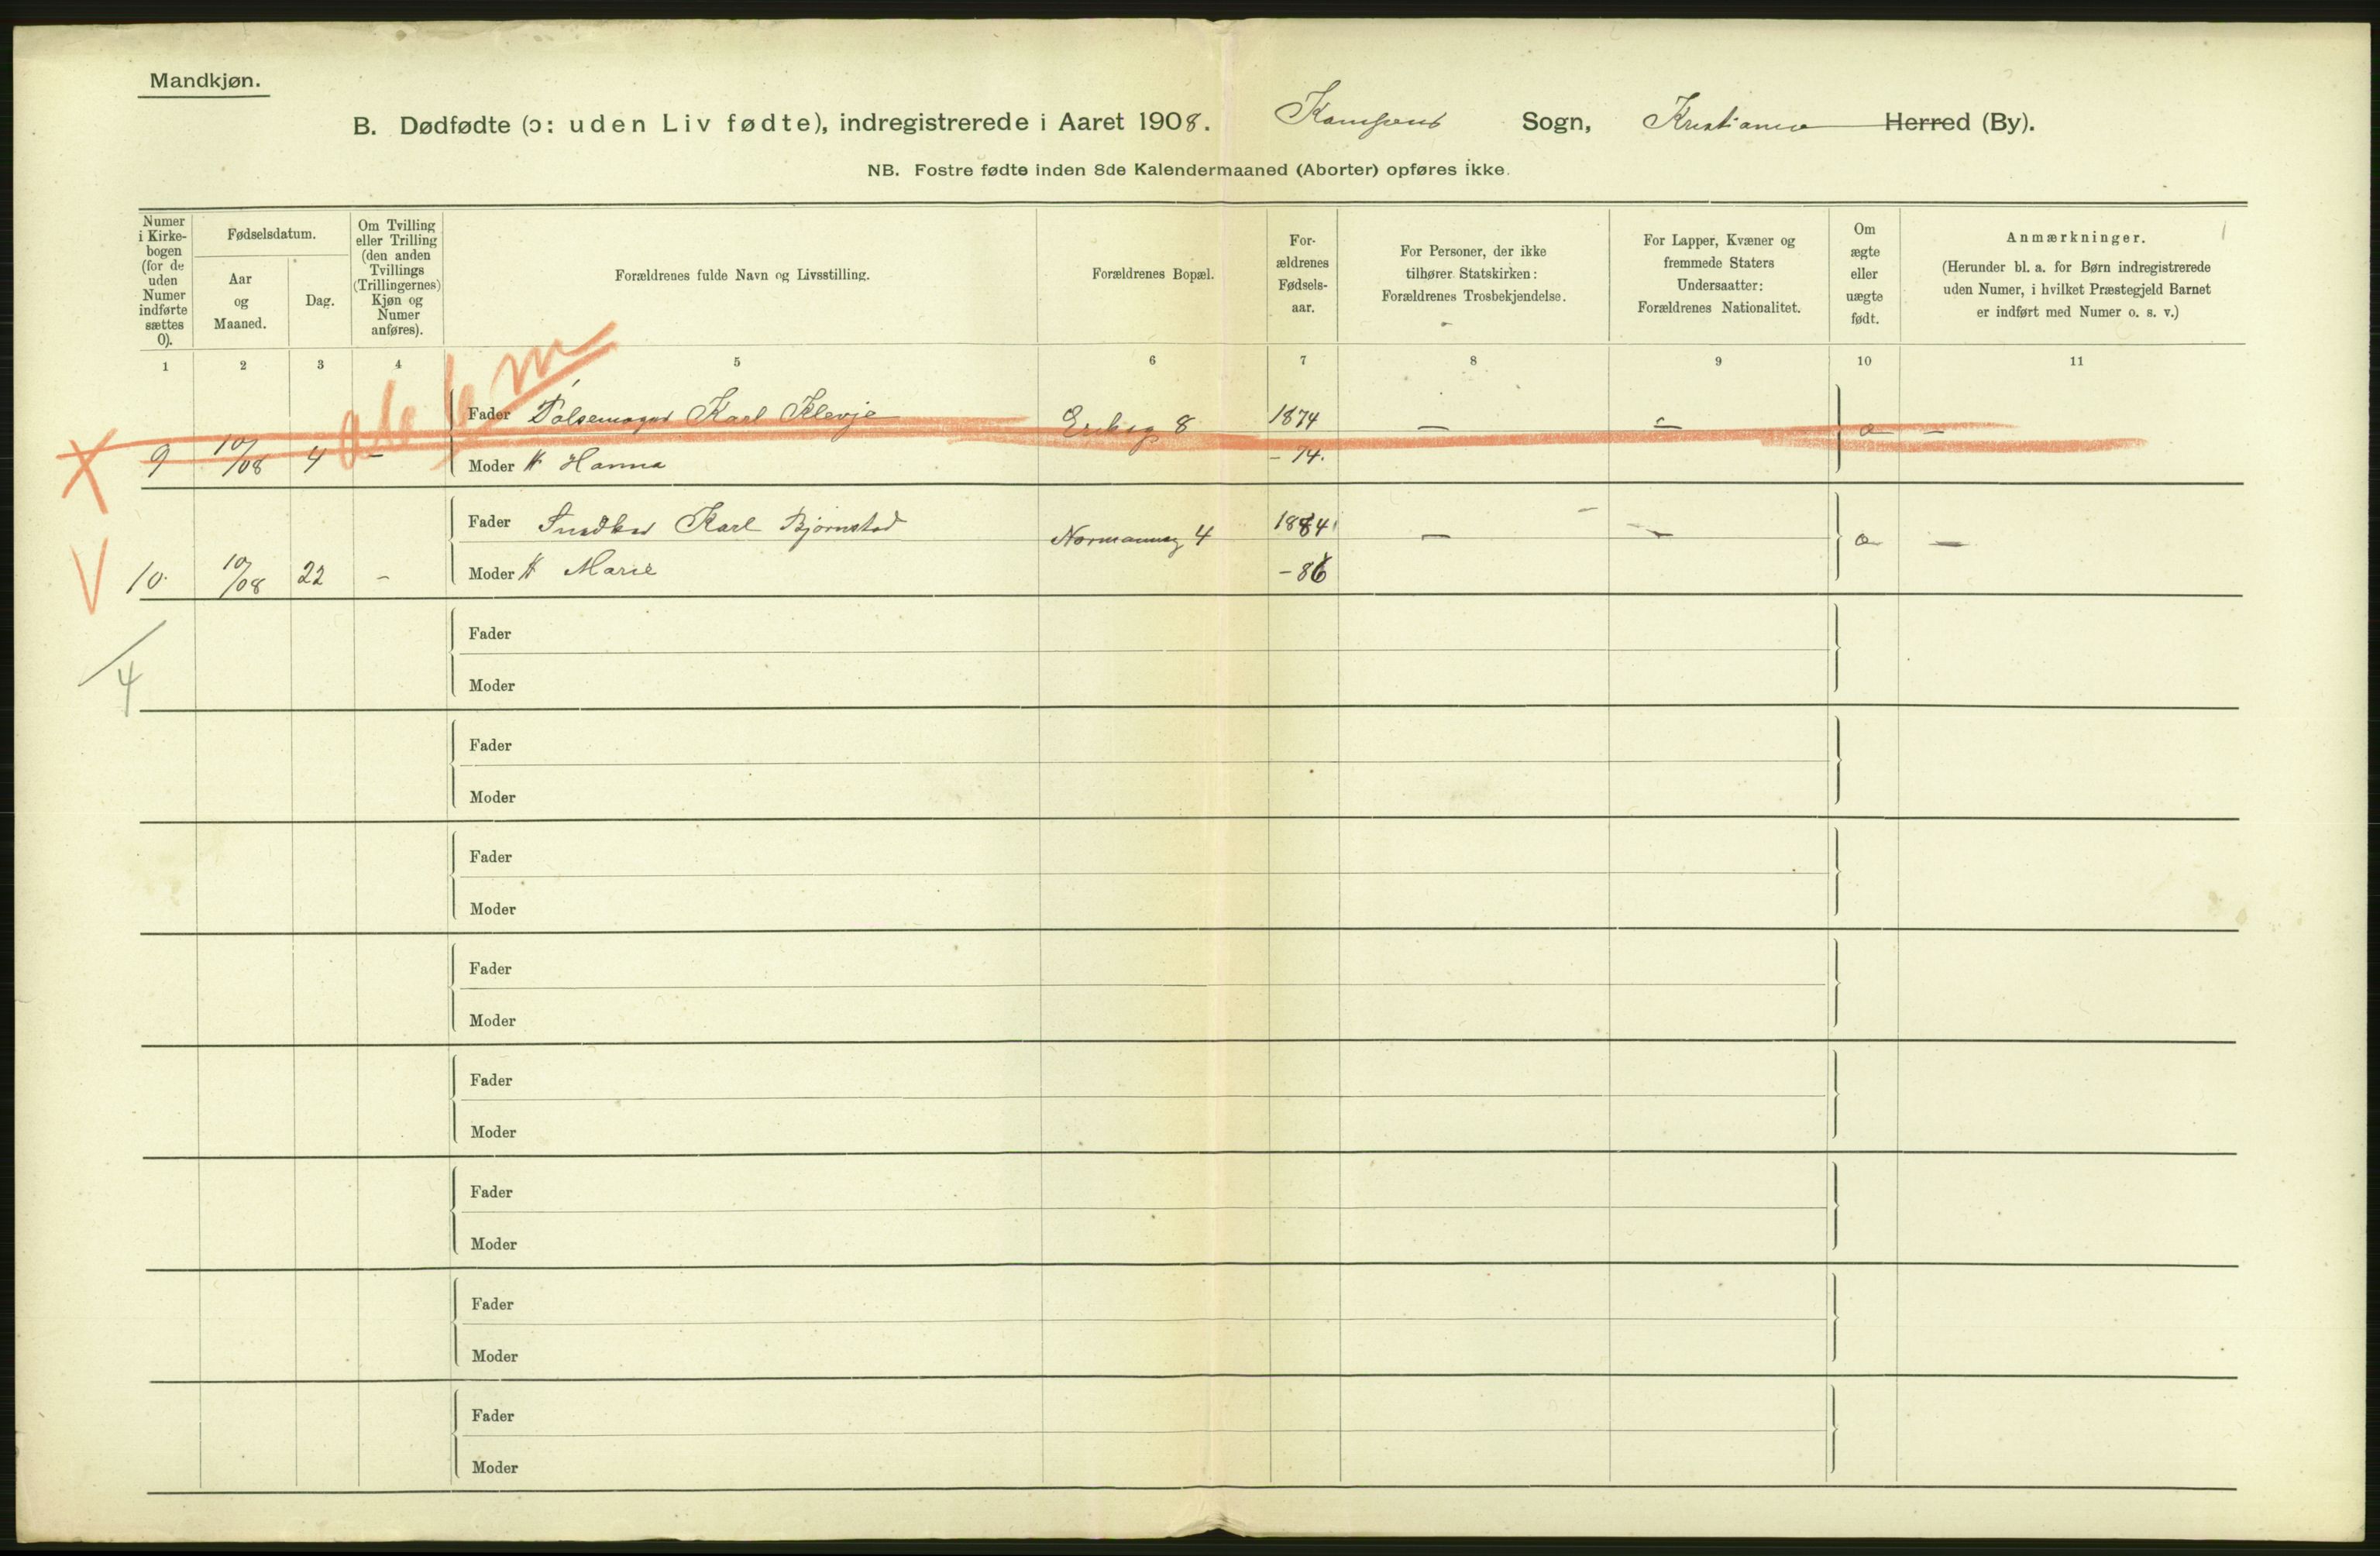 Mandkjøn.
B. Dødfødte (ɔ: uden Liv fødte), indregistrerede i Aaret 1908. Kampens Sogn, Kristiania Herred (By).
NB. Fostre fødte inden 8de Kalendermaaned (Aborter) opføres ikke.
Numer i Kirke- bogen (for de uden Numer indførte sættes 0).
Fødselsdatum.
Aar og Maaned.
Dag.
Om Tvilling eller Trilling (den anden Tvillings (Trillingernes) Kjøn og Numer anføres).
Forældrenes fulde Navn og Livsstilling.
Forældrenes Bopæl.
For- ældrenes Fødsels- aar.
For Personer, der ikke tilhører Statskirken: Forældrenes Trosbekjendelse.
For Lapper, Kvæner og fremmede Staters Undersaatter: Forældrenes Nationalitet.
Om ægte eller uægte født.
Anmærkninger.
(Herunder bl. a. for Børn indregistrerede uden Numer, i hvilket Præstegjeld Barnet er indført med Numer o. s. v.)
1 2 3 4 5 6 7 8 9 10 11
Fader Pølsemager Karl Klevje 8 1874 —
9 10/08 4 – Moder H. Hanna – 74.
Fader Snedker Karl Bjørnstad Normannsg 4 1884 — — —
10. 10/08 22 – Moder H Marie – 86
Fader
4
Moder
Fader
Moder
Fader
Moder
Fader
Moder
Fader
Moder
Fader
Moder
Fader
Moder
Fader
Moder